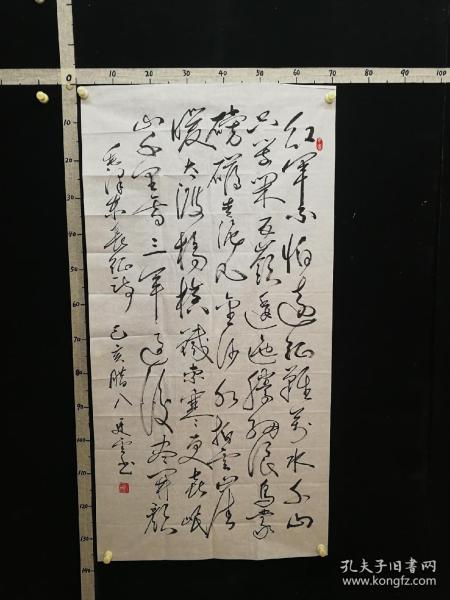 红军不怕远征难万水千山
只等闲五岭逶迤腾细浪乌蒙
磅礴走泥丸金沙水拍云崖
暖大渡桥横铁索寒更喜岷
山千里雪三军过后尽开颜
毛泽东长征诗 己亥腊八 书
0 10 20 30 40 50 60 70
10
20
30
40
50
60
70
80
90
100
110
120
130
孔夫子旧书网
www.kongfz.com